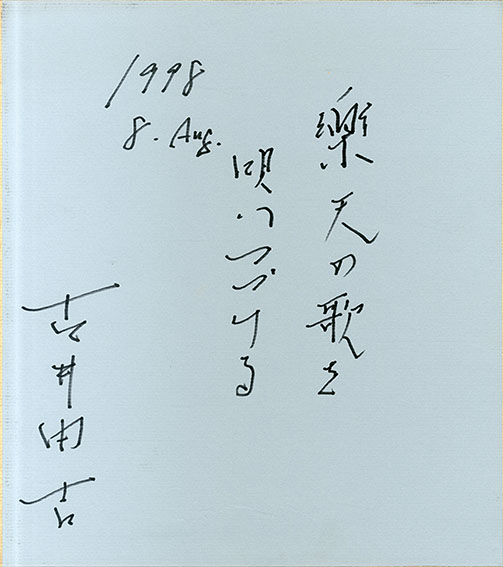 樂天の歌を
唄いつづける
1998
8. Aug.
古井由吉